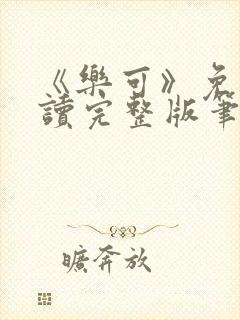 《樂可》免
讀完整版筆
曠奔放